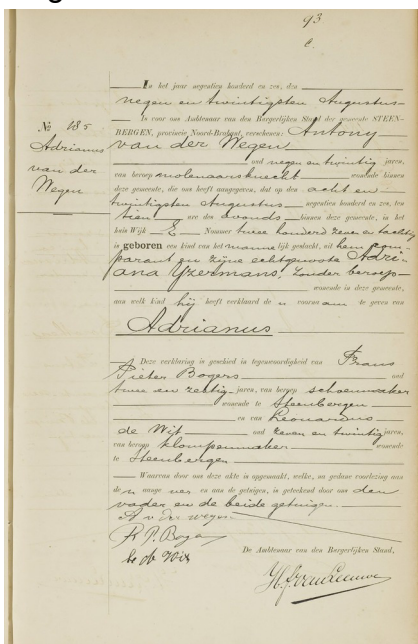 93
In het jaar negentien honderd en zes, den
negen en twintigsten Augustus
is voor ons Ambtenaar van den Burgerlijken Stand der gemeente STEEN-
BERGEN, provincie Noord-Brabant, verschenen: Antony
van der Wegen
oud negen en twintig jaren,
van beroep molenaarsknecht wonende binnen
deze gemeente, die ons heeft aangegeven, dat op den acht en
twintigsten Augustus negentien honderd en zes, ten
tien ure des avonds binnen deze gemeente, in het
huis Wijk E Nommer twee honderd zeven en tachtig
is geboren een kind van het mannelijk geslacht, uit hem com-
parant en zijne echtgenoote Adri-
ana Yzermans, zonder beroep
wonende in deze gemeente,
aan welk kind hij heeft verklaard de n voornaam te geven van
Adrianus
Deze verklaring is geschied in tegenwoordigheid van Frans
Pieter Bogers oud
twee en zestig jaren, van beroep schoenmaker
wonende te Steenbergen
en van Leonardus
de Wit oud zeven en twintig jaren,
van beroep klompenmaker wonende
te Steenbergen
Waarvan door ons deze akte is opgemaakt, welke, na gedane voorlezing aan
de n aangever en aan de getuigen, is geteekend door ons den
vader en de beide getuigen.
A v der wegen
De Ambtenaar van den Burgerlijken Stand,
№ 185
Adrianus
van der
Wegen